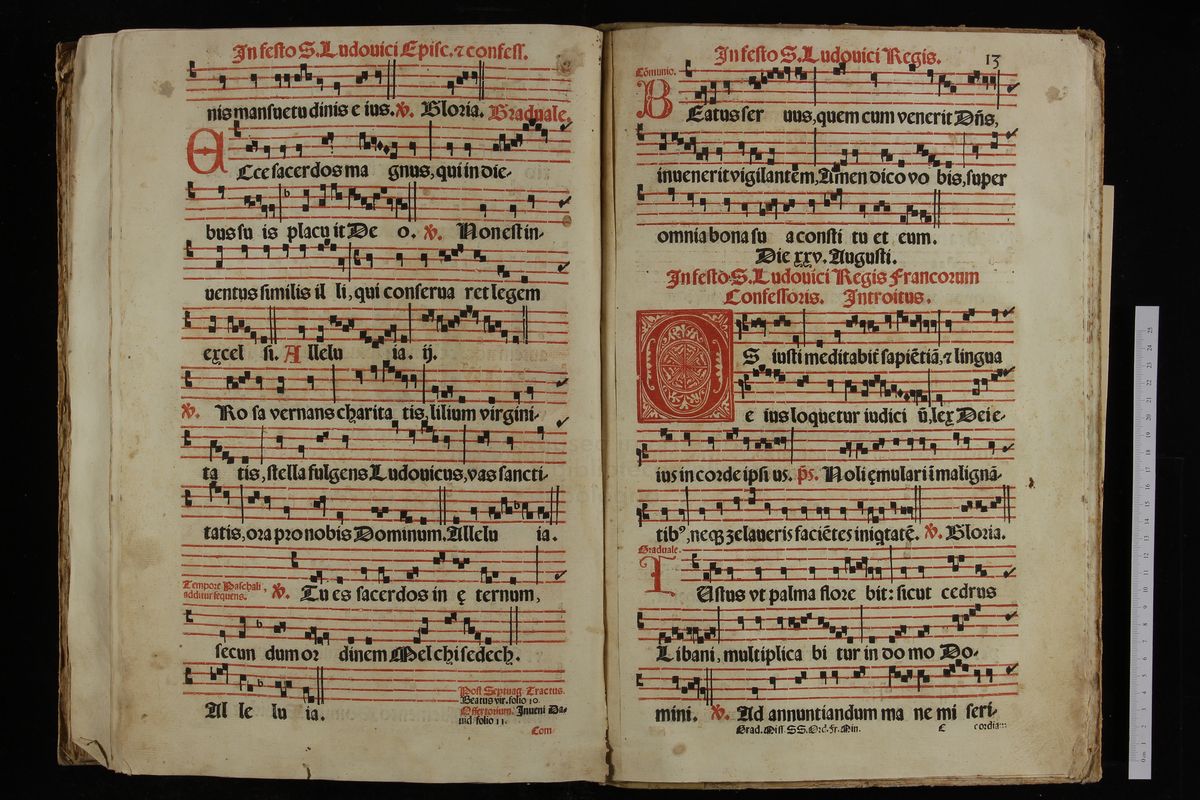 In festo S. Ludouici Episc. ⁊ confess.
nis mansuetu dinis e ius. ℣. Gloria. Graduale.
E Cce sacerdos ma gnus, qui in die-
bus su is placu it De o. ℣. Non est in-
uentus similis il li, qui conserua ret legem
excel si. A llelu ia. ij.
℣. Ro sa vernans charita tis, lilium virgini-
ta tis, stella fulgens Ludouicus, vas sancti-
tatis, ora pro nobis Dominum. Allelu ia.
Tempore Paschali,
additur sequens.
℣. Tu es sacerdos in ę ternum,
secun dum or dinem Melchisedech.
Al le lu ia.
Post Septuag. Tractus.
Beatus vir. folio 10.
Offertorium. Inueni Da-
uid folio 11.
Com-
In festo S. Ludouici Regis. 13
Cōmunio.
B Eatus ser uus, quem cum venerit Dn̄s,
inuenerit vigilantem, Amen dico vo bis, super
omnia bona su a consti tu et eum.
Die xxv. Augusti.
In festo S. Ludouici Regis Francorum
Confessoris. Introitus.
O S iusti meditabit̄ sapiētiā, ⁊ lingua
e ius loquetur iudici ū, lex Dei e-
ius in corde ipsi us. p̄s. Noli ęmulari ī malignā-
tibꝰ, neqꝫ zelaueris faciētes iniqtatē. ℣. Gloria.
Graduale.
I Ustus vt palma flore bit: sicut cedrus
Libani, multiplica bi tur in do mo Do-
mini. ℣. Ad annuntiandum ma ne mi seri-
Grad. Miss. SS. Ord. Fr. Min. C cordiam